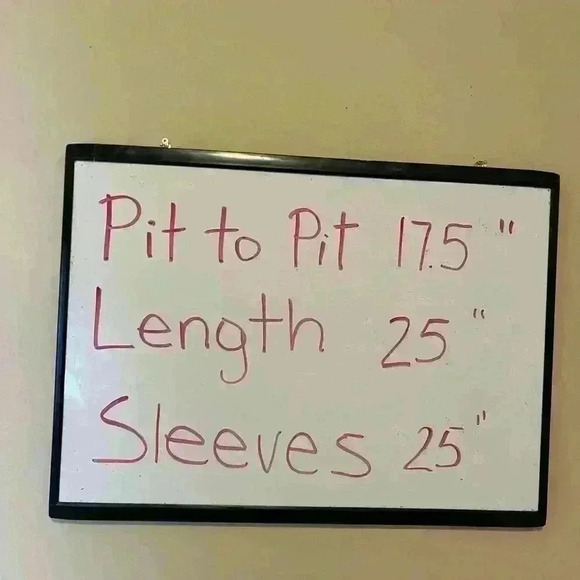 Pit to Pit 17.5"
Length 25"
Sleeves 25"